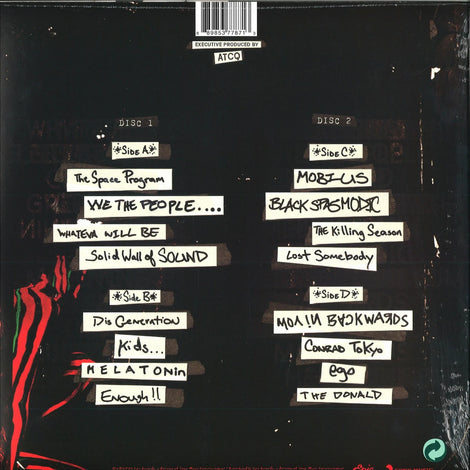 8 89853 77871 3
EXECUTIVE PRODUCED BY
ATCQ
DISC 1
*SIDE A*
The Space Program
WE THE PEOPLE....
WHATEVA WILL BE
Solid Wall of SOUND
*SIDE B*
Dis Generation
Kids...
MELATONIN
Enough!!
DISC 2
*SIDE C*
MOBIUS
BLACK SPASMODIC
The Killing Season
Lost Somebody
*SIDE D*
MOVIN BACKWARDS
CONRAD TOKYO
ego
THE DONALD